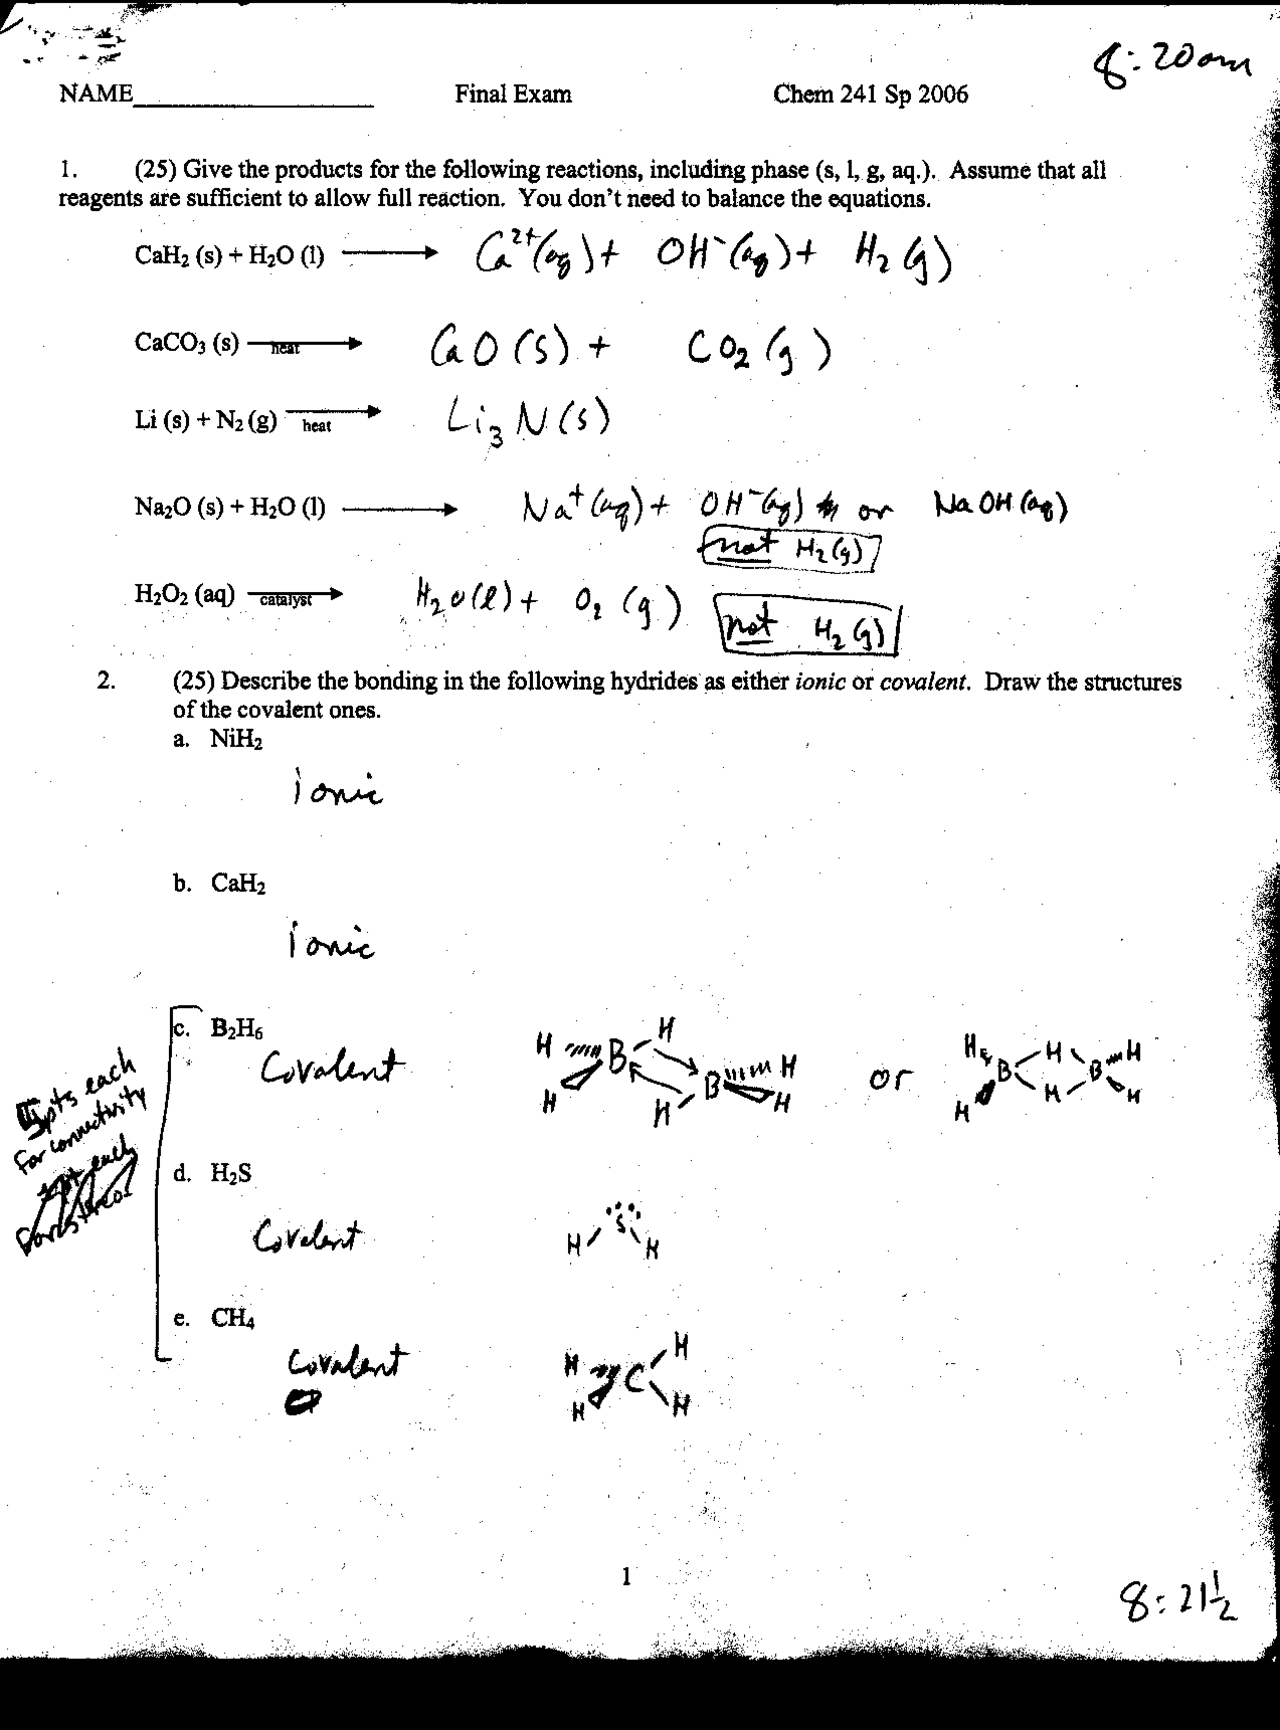 8:20am
NAME Final Exam Chem 241 Sp 2006
1. (25) Give the products for the following reactions, including phase (s, l, g, aq.). Assume that all
reagents are sufficient to allow full reaction. You don't need to balance the equations.
CaH₂ (s) + H₂O (l) ⟶ Ca²⁺(aq) + OH⁻(aq) + H₂ (g)
CaCO₃ (s) heat ⟶ CaO (s) + CO₂ (g)
Li (s) + N₂ (g) heat ⟶ Li₃N (s)
Na₂O (s) + H₂O (l) ⟶ Na⁺(aq) + OH⁻(aq) or NaOH (aq)
not H₂(g)
H₂O₂ (aq) catalyst ⟶ H₂O(l) + O₂ (g) not H₂ (g)
2. (25) Describe the bonding in the following hydrides as either ionic or covalent. Draw the structures
of the covalent ones.
a. NiH₂
ionic
b. CaH₂
ionic
c. B₂H₆
Covalent
H B H B H H H H or H B H B H H H H
pts each
for connectivity
each
d. H₂S
Covalent
H S H
e. CH₄
Covalent
H C H H H
1
8:21½